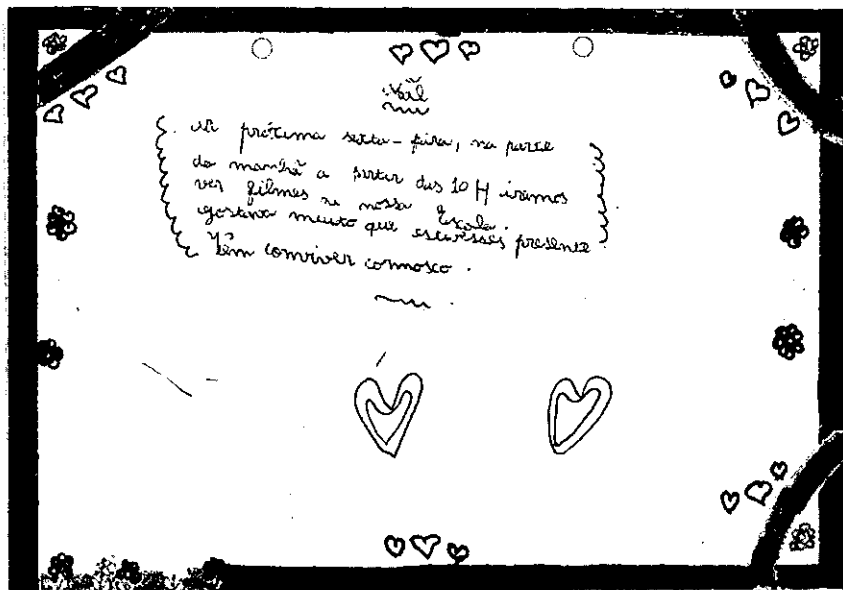 Na próxima sexta-feira, na parte
da manhã a partir das 10 H iremos
ver filmes na nossa Escola.
gostava muito que estivesses presente.
Vêm conviver connosco.